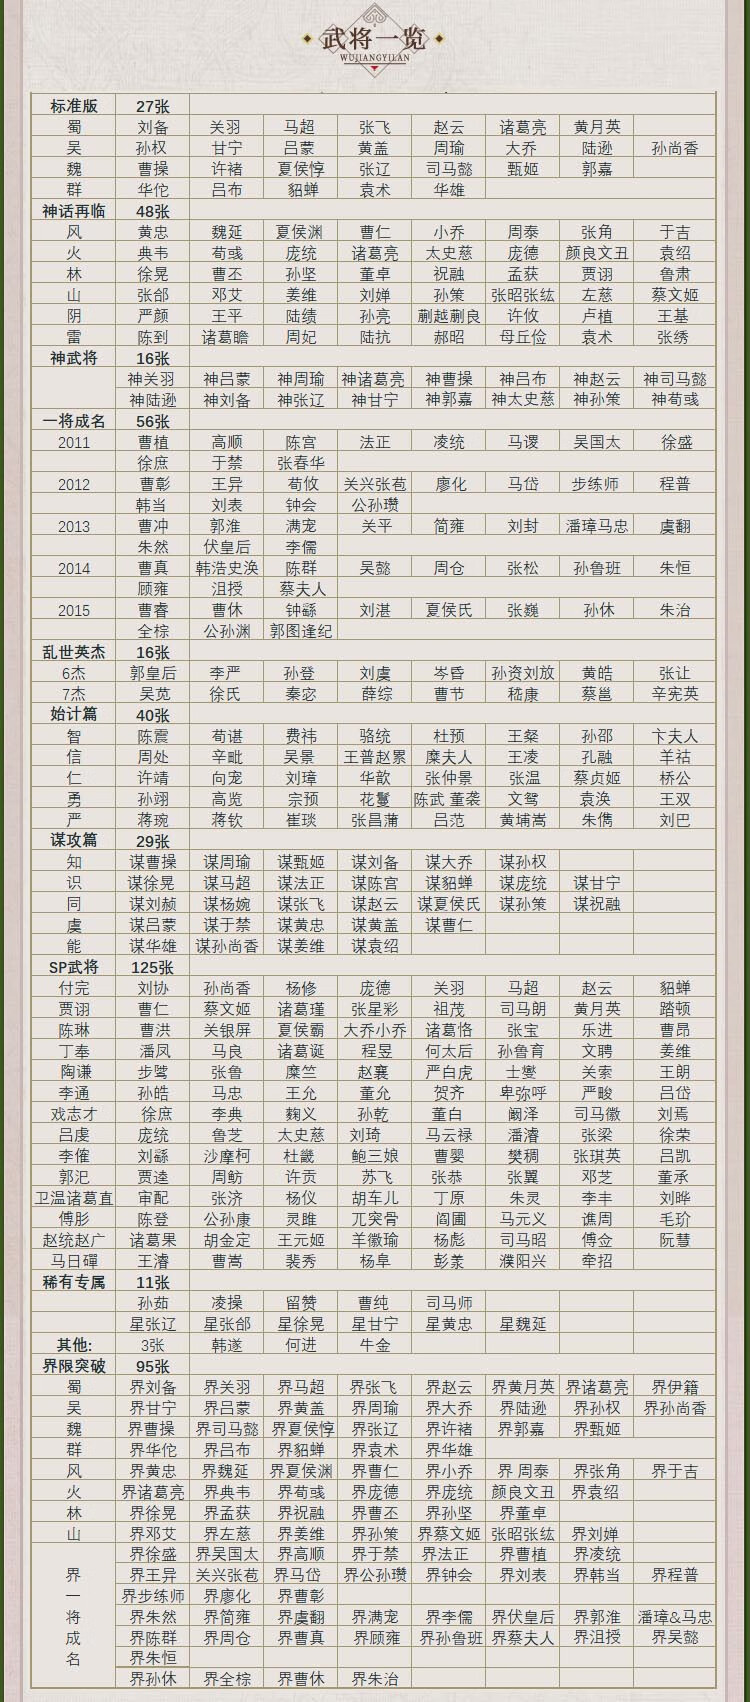 武将一览
WUJIANGYILAN
标准版 27张
蜀 刘备 关羽 马超 张飞 赵云 诸葛亮 黄月英
吴 孙权 甘宁 吕蒙 黄盖 周瑜 大乔 陆逊 孙尚香
魏 曹操 许褚 夏侯惇 张辽 司马懿 甄姬 郭嘉
群 华佗 吕布 貂蝉 袁术 华雄
神话再临 48张
风 黄忠 魏延 夏侯渊 曹仁 小乔 周泰 张角 于吉
火 典韦 荀彧 庞统 诸葛亮 太史慈 庞德 颜良文丑 袁绍
林 徐晃 曹丕 孙坚 董卓 祝融 孟获 贾诩 鲁肃
山 张郃 邓艾 姜维 刘婵 孙策 张昭张纮 左慈 蔡文姬
阴 严颜 王平 陆绩 孙亮 蒯越蒯良 许攸 卢植 王基
雷 陈到 诸葛瞻 周妃 陆抗 郝昭 母丘俭 袁术 张绣
神武将 16张
神关羽 神吕蒙 神周瑜 神诸葛亮 神曹操 神吕布 神赵云 神司马懿
神陆逊 神刘备 神张辽 神甘宁 神郭嘉 神太史慈 神孙策 神荀彧
一将成名 56张
2011 曹植 高顺 陈宫 法正 凌统 马谡 吴国太 徐盛
徐庶 于禁 张春华
2012 曹彰 王异 荀攸 关兴张苞 廖化 马岱 步练师 程普
韩当 刘表 钟会 公孙瓒
2013 曹冲 郭淮 满宠 关平 简雍 刘封 潘璋马忠 虞翻
朱然 伏皇后 李儒
2014 曹真 韩浩史涣 陈群 吴懿 周仓 张松 孙鲁班 朱恒
顾雍 沮授 蔡夫人
2015 曹睿 曹休 钟繇 刘湛 夏侯氏 张嶷 孙休 朱治
全棕 公孙渊 郭图逢纪
乱世英杰 16张
6杰 郭皇后 李严 孙登 刘虞 岑昏 孙资刘放 黄皓 张让
7杰 吴苋 徐氏 秦宓 薛综 曹节 嵇康 蔡邕 辛宪英
始计篇 40张
智 陈震 荀谌 费祎 骆统 杜预 王粲 孙邵 卞夫人
信 周处 辛毗 吴景 王普赵累 糜夫人 王凌 孔融 羊祜
仁 许靖 向宠 刘璋 华歆 张仲景 张温 蔡贞姬 桥公
勇 孙翊 高览 宗预 花鬘 陈武 董袭 文鸳 袁涣 王双
严 蒋琬 蒋钦 崔琰 张昌蒲 吕范 黄埔嵩 朱儁 刘巴
谋攻篇 29张
知 谋曹操 谋周瑜 谋甄姬 谋刘备 谋大乔 谋孙权
识 谋徐晃 谋马超 谋法正 谋陈宫 谋貂蝉 谋庞统 谋甘宁
同 谋刘赪 谋杨婉 谋张飞 谋赵云 谋夏侯氏 谋孙策 谋祝融
虞 谋吕蒙 谋于禁 谋黄忠 谋黄盖 谋曹仁
能 谋华雄 谋孙尚香 谋姜维 谋袁绍
SP武将 125张
付完 刘协 孙尚香 杨修 庞德 关羽 马超 赵云 貂蝉
贾诩 曹仁 蔡文姬 诸葛瑾 张星彩 祖茂 司马朗 黄月英 踏顿
陈琳 曹洪 关银屏 夏侯霸 大乔小乔 诸葛恪 张宝 乐进 曹昂
丁奉 潘凤 马良 诸葛诞 程昱 何太后 孙鲁育 文聘 姜维
陶谦 步骘 张鲁 糜竺 赵襄 严白虎 士燮 关索 王朗
李通 孙皓 马忠 王允 董允 贺齐 卑弥呼 严畯 吕岱
戏志才 徐庶 李典 麹义 孙乾 董白 阚泽 司马徽 刘焉
吕虔 庞统 鲁芝 太史慈 刘琦 马云禄 潘濬 张梁 徐荣
李傕 刘繇 沙摩柯 杜畿 鲍三娘 曹婴 樊稠 张琪英 吕凯
郭汜 贾逵 周鲂 许贡 苏飞 张恭 张翼 邓芝 董承
卫温诸葛直 审配 张济 杨仪 胡车儿 丁原 朱灵 李丰 刘晔
傅肜 陈登 公孙康 灵雎 兀突骨 阎圃 马元义 谯周 毛玠
赵统赵广 诸葛果 胡金定 王元姬 羊徽瑜 杨彪 司马昭 傅佥 阮慧
马日磾 王濬 曹嵩 裴秀 杨阜 彭羕 濮阳兴 牵招
稀有专属 11张
孙茹 凌操 留赞 曹纯 司马师
星张辽 星张郃 星徐晃 星甘宁 星黄忠 星魏延
其他: 3张 韩遂 何进 牛金
界限突破 95张
蜀 界刘备 界关羽 界马超 界张飞 界赵云 界黄月英 界诸葛亮 界伊籍
吴 界甘宁 界吕蒙 界黄盖 界周瑜 界大乔 界陆逊 界孙权 界孙尚香
魏 界曹操 界司马懿 界夏侯惇 界张辽 界许褚 界郭嘉 界甄姬
群 界华佗 界吕布 界貂蝉 界袁术 界华雄
风 界黄忠 界魏延 界夏侯渊 界曹仁 界小乔 界 周泰 界张角 界于吉
火 界诸葛亮 界典韦 界荀彧 界庞德 界庞统 颜良文丑 界袁绍
林 界徐晃 界孟获 界祝融 界曹丕 界孙坚 界董卓
山 界邓艾 界左慈 界姜维 界孙策 界蔡文姬 张昭张纮 界刘婵
界一将成名 界徐盛 界吴国太 界高顺 界于禁 界法正 界曹植 界凌统
界王异 关兴张苞 界马岱 界公孙瓒 界钟会 界刘表 界韩当 界程普
界步练师 界廖化 界曹彰
界朱然 界简雍 界虞翻 界满宠 界李儒 界伏皇后 界郭淮 潘璋&马忠
界陈群 界周仓 界曹真 界顾雍 界孙鲁班 界蔡夫人 界沮授 界吴懿
界朱恒
界孙休 界全棕 界曹休 界朱治